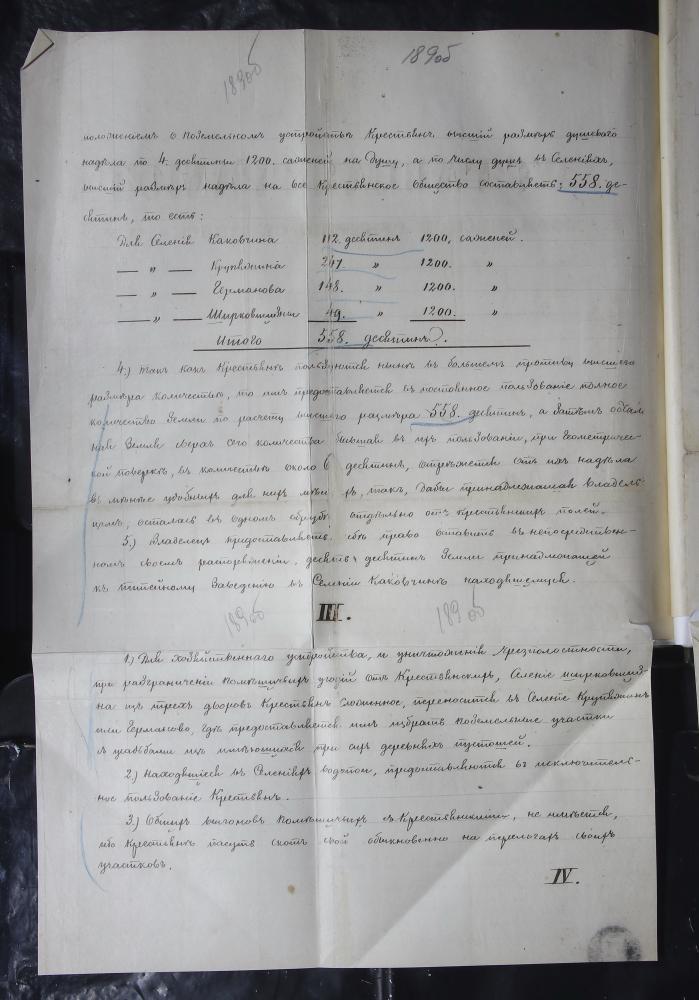 189об
189об
положеніемъ о поземельномъ устройствѣ Крестьянъ высшій размѣръ душеваго
надѣла по 4. десятины 1200. саженей на душу, а по числу душъ въ Селеніяхъ,
высшій размѣръ надѣла на все Крестьянское Общество составляетъ: 558. де-
сятинъ, то есть:
Для Селенія Каковчина 112. десятинъ 1200. саженей.
— „ — Крупянина 247. „ 1200. „
— „ — Германова 148. „ 1200. „
— „ — 49. „ 1200. „
Итого 558. десятинъ.
4.) Такъ какъ Крестьяне пользуются нынѣ въ большемъ противу высшаго
размѣра количествѣ, то имъ предоставляется въ постоянное пользованіе полное
количество Земли по расчету высшаго размѣра 558. десятинъ, а Затѣмъ
Земля сверхъ сего количества бывшая въ ихъ пользованіи, при Геометричес-
кой повѣркѣ, въ количествѣ около 6 десятинъ, отрѣжется отъ ихъ надѣла
въ удобныхъ для нихъ такъ, дабы принадлежащая владѣль-
цемъ, осталась въ одномъ отдѣльно отъ крестьянскихъ полей.
5.) Владѣлецъ предоставляетъ себѣ право оставить въ непосредствен-
номъ своемъ распоряженіи, десять десятинъ Земли принадлежащей
къ питейному Заведенію въ Селеніи Каковчинѣ находящемуся.
189об
189об
III.
1.) Для хозяйственнаго устройства, и уничтоженія Чрезполостности,
при разграниченіи помѣщичьихъ угодій отъ Крестьянскихъ, Селеніе
на изъ трехъ дворовъ Крестьянъ сложенное, переносится въ Селеніе
или Германово, гдѣ предоставляется имъ избрать поземельные участки
съ усадьбами изъ имѣющихся при сихъ деревняхъ пустошей.
2.) Находящіеся въ Селеніяхъ водопои, предоставляются въ исключитель-
ное пользованіе Крестьянъ.
3.) Общихъ выгоновъ помѣщичьихъ съ Крестьянскими, не имѣется,
ибо Крестьяне пасутъ скотъ свой обыкновенно на перелогахъ своихъ
участковъ.
IV.